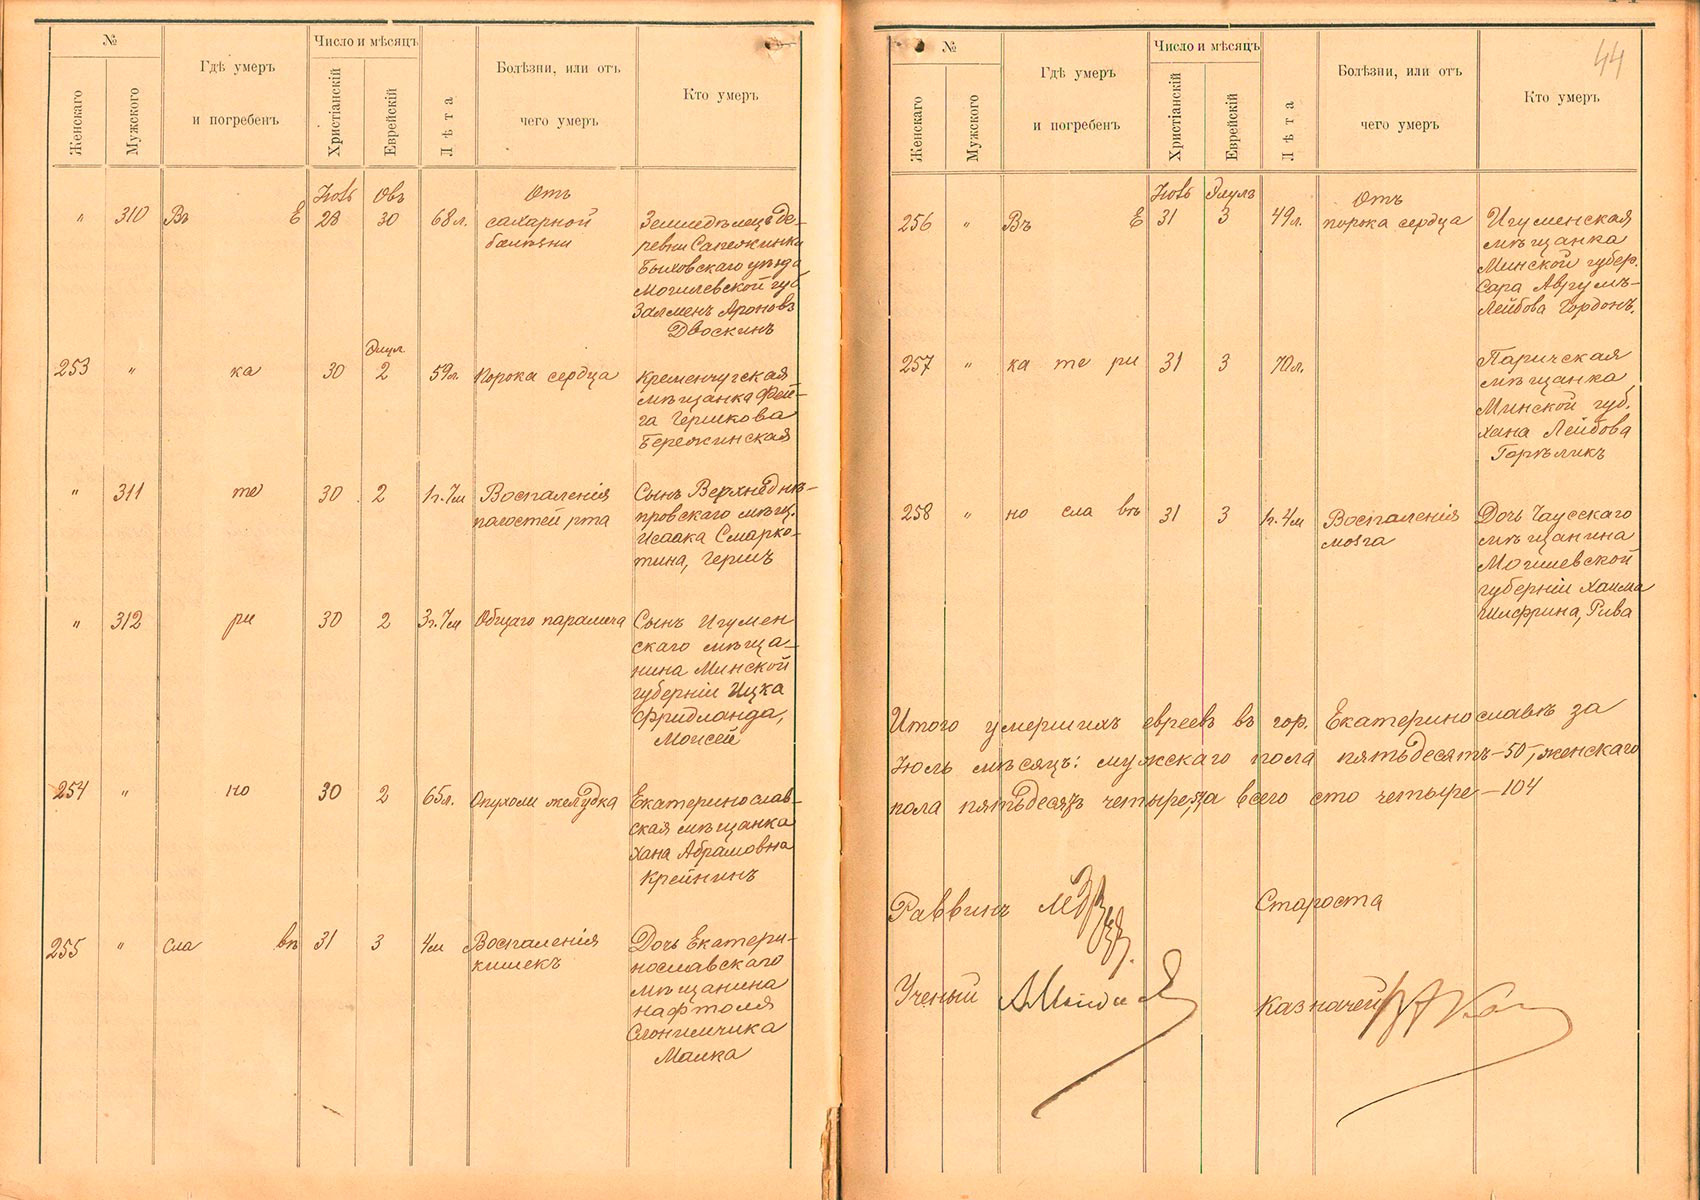 №
Число и мѣсяцъ
Женскаго
Мужского
Гдѣ умеръ
и погребенъ
Христіанскій
Еврейскій
Лѣта
Болѣзни, или отъ
чего умеръ
Кто умеръ
Овъ Отъ
" 310 Въ Е 28 30 68 л. сахарной болѣзни
Земледѣлецъ де-
ревни
Быховскаго уѣзда
Могилевской губ
Залменъ Ароновъ
Двоскинъ
Элул
253 " ка 30 2 59 л. Порока сердца
Кременчугская
мѣщанка Фей-
га Гершкова
Бережинская
" 311 те 30 2 1 г. 7 м Воспаленія
полостей рта
Сынъ Верхнеднѣ-
провскаго мѣщ.
Исаака Смарко-
тина, Гершъ
" 312 ри 30 2 3 г. 7 м Общаго паралича
Сынъ Игумен
скаго мѣща-
нина Минской
губерніи Ицка
Фридланда,
Моисей
254 " но 30 2 65 л. Опухоли желудка
Екатеринослав-
ская мѣщанка
Хана Абрамовна
Крейнинъ
255 " сла вѣ 31 3 4 м Воспаленія
кишекъ
Дочь Екатери-
нославскаго
мѣщанина
Нафтоля
Слонимчика
Малка
44
№
Число и мѣсяцъ
Женскаго
Мужского
Гдѣ умеръ
и погребенъ
Христіанскій
Еврейскій
Лѣта
Болѣзни, или отъ
чего умеръ
Кто умеръ
Элулъ Отъ
256 " Въ Е 31 3 49 л. порока сердца
Игуменская
мѣщанка
Минской губер.
Сара
Лейбова Гордонъ.
257 " ка те ри 31 3 70 л.
Паричская
мѣщанка
Минской губ.
Хана Лейбова
Горѣликъ
258 " но сла вѣ 31 3 1 г. 4 м Воспаленія
мозга
Дочь Чаусскаго
мѣщанина
Могилевской
губерніи Хаима
Шифрина, Рива
Итого умершихъ евреевъ въ гор. Екатеринославѣ за
Іюль мѣсяцъ: мужскаго пола пятьдесятъ – 50 –, женскаго
пола пятьдесятъ четыре, а всего сто четыре – 104
Раввинъ Староста
Ученый Казначей